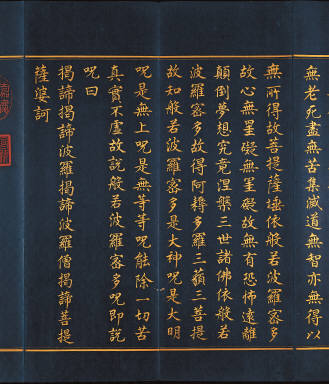 無老死盡無苦集滅道無智亦無得以
無所得故菩提薩埵依般若波羅蜜多
故心無罣礙無罣礙故無有恐怖遠離
顛倒夢想究竟涅槃三世諸佛依般若
波羅蜜多故得阿耨多羅三藐三菩提
故知般若波羅蜜多是大神呪是大明
呪是無上呪是無等等呪能除一切苦
真實不虛故說般若波羅蜜多呪即說
呪曰
揭諦揭諦波羅揭諦波羅僧揭諦菩提
薩婆訶